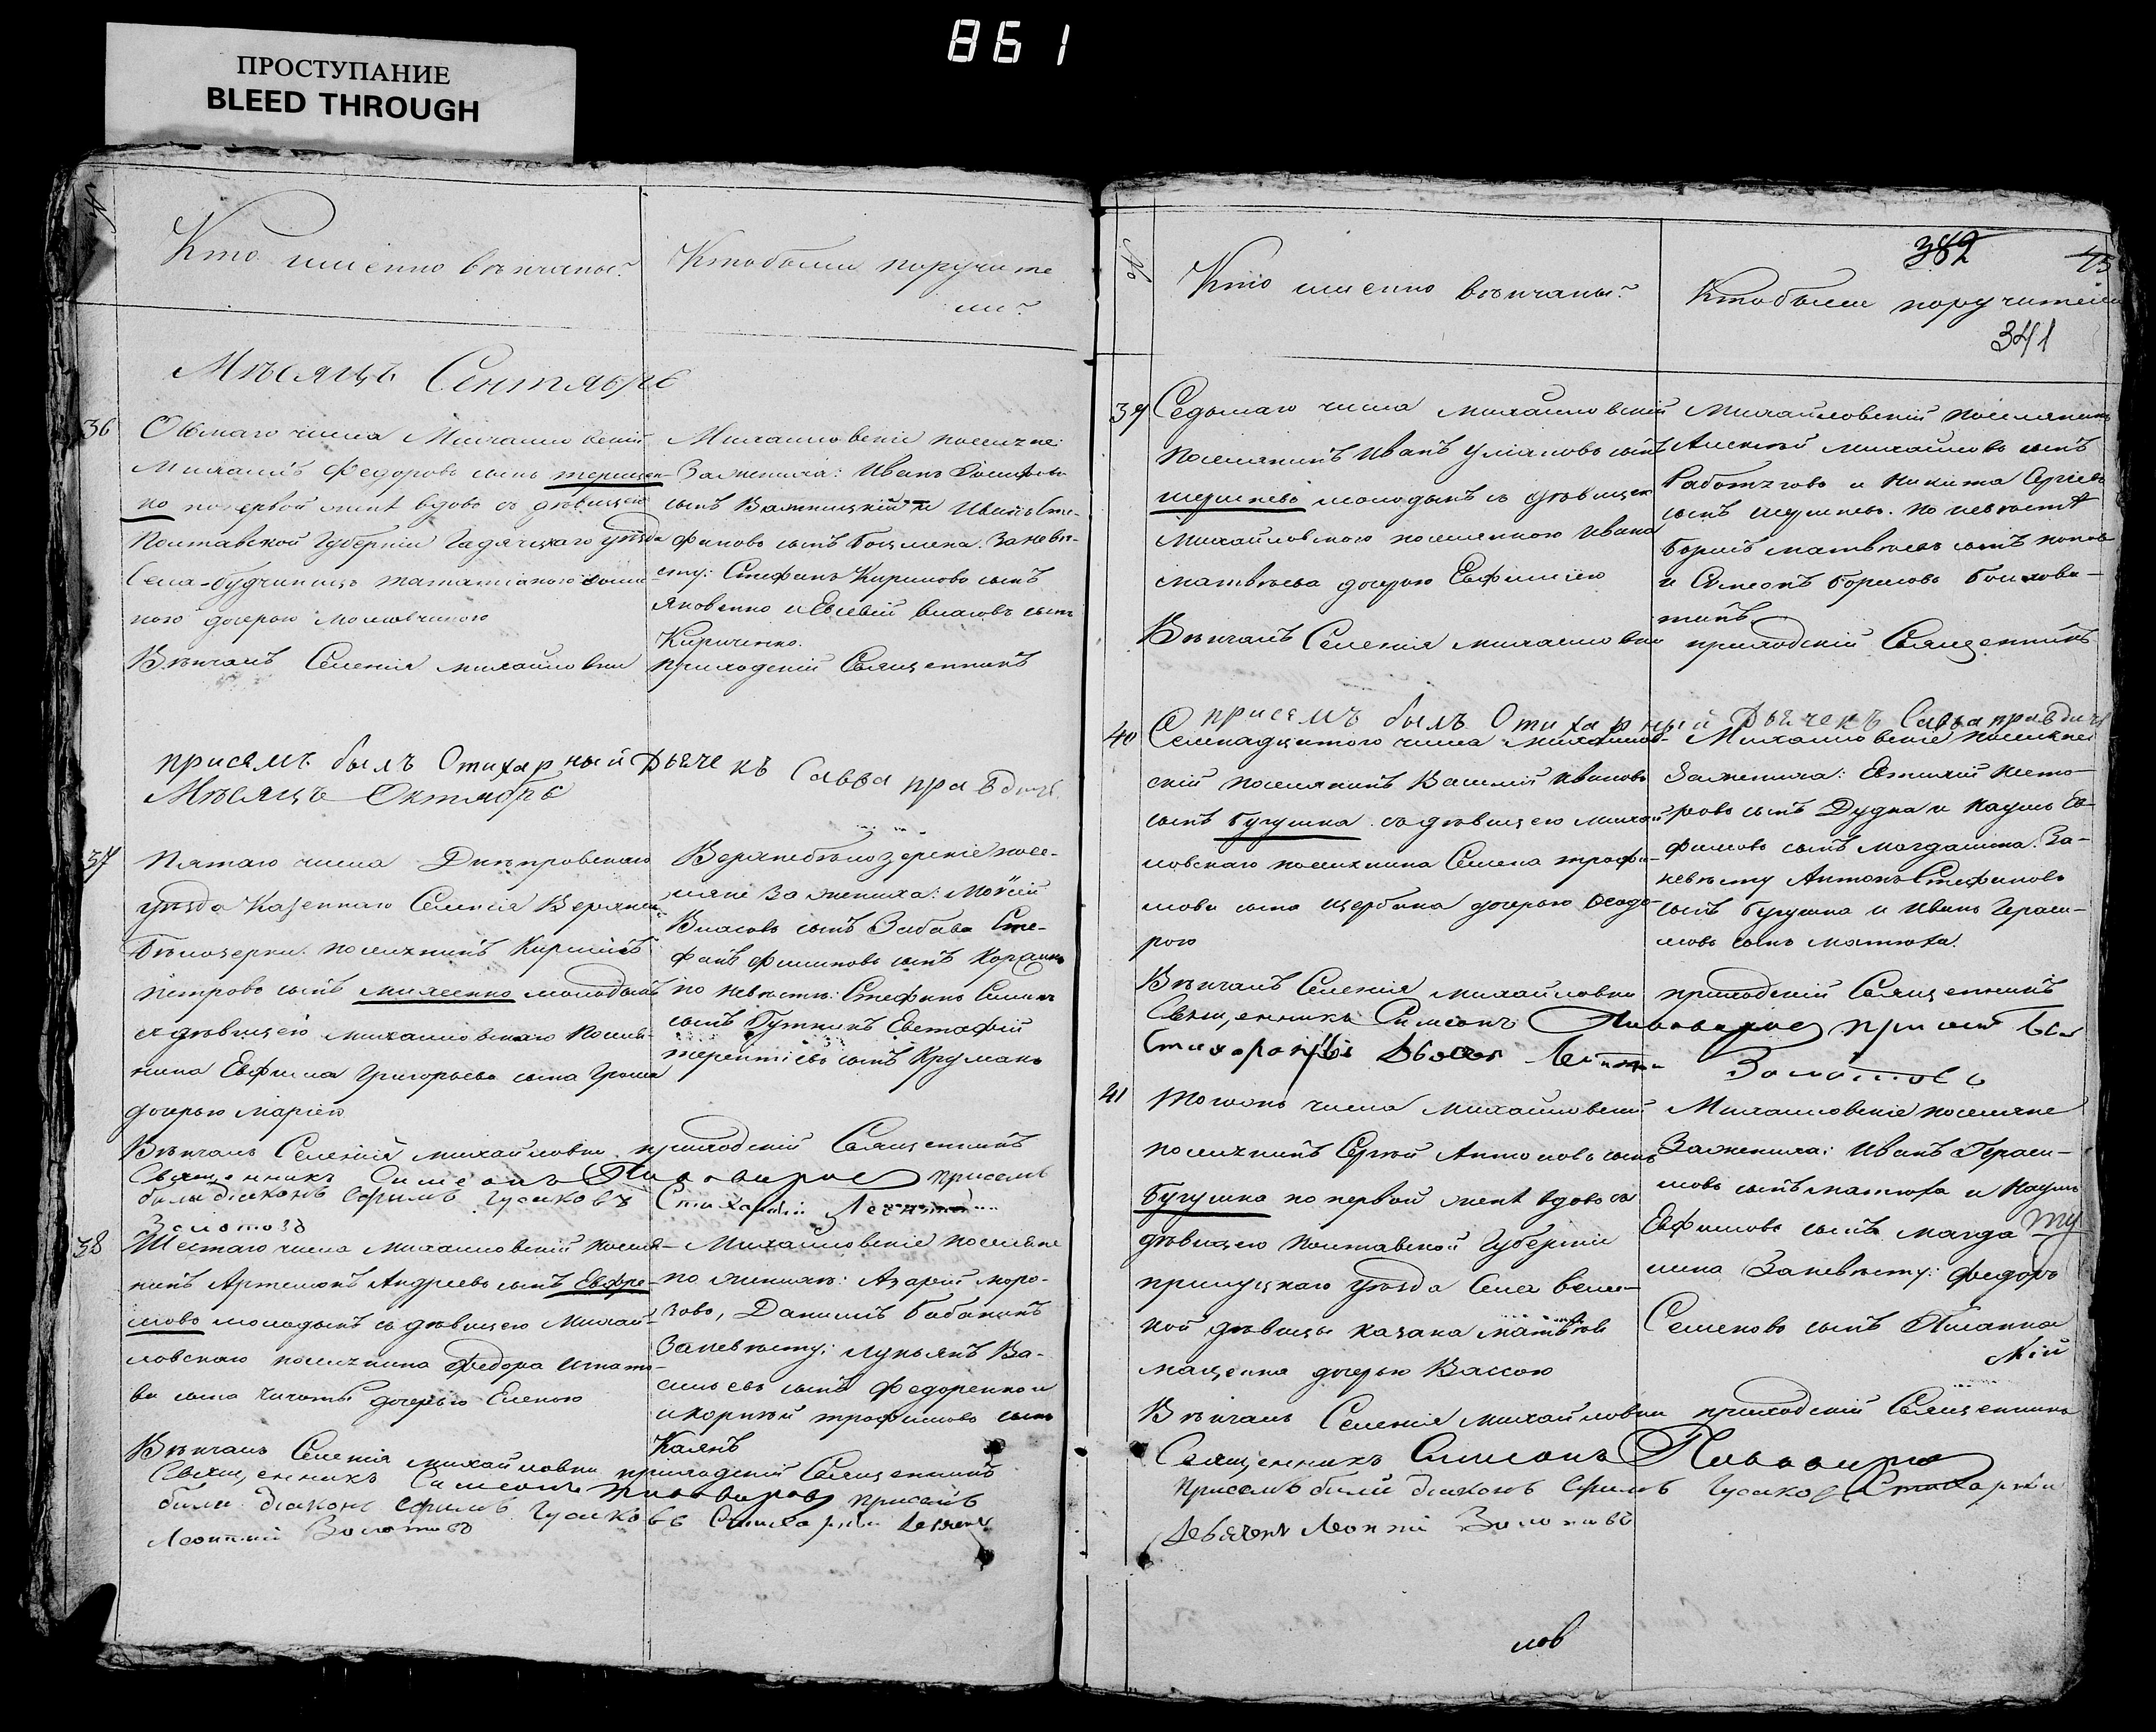 861
ПРОСТУПАНИЕ
BLEED THROUGH
№
Кто именно вѣнчаны?
Кто были поручите
ли?
Мѣсяцъ Сентябрь
36
Осьмаго числа Михайловскій
Михаилъ Федоровъ сынъ
ко по первой женѣ вдовъ съ дѣвицею
Полтавской Губерніи Гадячцкаго уѣзда
Села
ною дочерью
Вѣнчалъ Селенія Михайловки
Михайловскіе поселяне
За жениха: Иванъ
сынъ и Иванъ Сте-
фановъ сынъ За невѣ-
сту: Стефанъ Кириловъ сынъ
Яковенко и Евсевій Власовъ сынъ
Кириченко.
приходскій Священникъ
присемъ былъ Стихарный Дьячекъ Савва правдичъ
Мѣсяцъ Октябрь
37
Пятаго числа Днѣпровскаго
уѣзда Казеннаго Селенія Верхней
Бѣлозерки поселянинъ Кирилъ
Петровъ сынъ молодымъ
съ дѣвицею михайловскаго поселя-
нина Евфима Григорьева сына
дочерью Маріею
Верхнебѣлозерскіе посе-
ляне За жениха: Моѵсей
Власовъ сынъ Забава Сте-
фанъ Филиповъ сынъ
по невѣстѣ: Стефанъ
сынъ Евстафій
терентіевъ сынъ
Вѣнчалъ Селенія михайловки приходскій Священникъ
Священникъ Симеонъ Пивоваровъ присемъ
были діаконъ Ефимъ Гусаковъ Стихарный Леонтій
Золотовъ
38
Шестаго числа Михайловскій поселя-
нинъ Артемонъ Андреевъ сынъ Евфре-
мовъ молодымъ съ дѣвицею Михай-
ловскаго поселянина Федора Игнато-
ва сына дочерью Еленою
Михайловскіе поселяне
по женихѣ: Азарій Моро-
зовъ, Данилъ Бабакинъ
За невѣсту: Лукьянъ Ва-
сильевъ сынъ Федоренко и
и корнѣй трофимовъ сынъ
Калянъ
Вѣнчалъ Селенія михайловки приходскій Священникъ
Священникъ Симеонъ Пивоваровъ присемъ
были діаконъ Ефимъ Гусаковъ Стихарный Дьячекъ
Леонтій Золотовъ
№
Кто именно вѣнчаны?
382
Кто были поручители
341
39
Седьмаго числа михайловскій
поселянинъ Иванъ сынъ
молодымъ съ дѣвицею
Михайловскаго поселянина Ивана
матвѣева дочерью Евфиміею
Вѣнчалъ Селенія михайловки
Михайловскій поселянинъ
Алексѣй михайловъ сынъ
и Никита Сергіевъ
сынъ по невѣстѣ
Борисъ матвѣевъ сынъ попов
и Симеонъ Борисовъ
тинъ
приходскій Священникъ
присемъ былъ Стихарный Дьячекъ Савва правдичъ
40
Семнадцатого числа Михайлов-
скій поселянинъ Василій Ивановъ
сынъ Бугушка съ дѣвицею Михай-
ловскаго поселянина Семена трофи-
мова сына Щербака дочерью Феодо-
рою
Михайловскіе поселяне
За жениха: Евтихій Несто-
ровъ сынъ Дудка и Наумъ Ев-
фимовъ сынъ Магдалина. За-
невѣсту Антонъ Стефановъ
сынъ Бугушка и Иванъ Гераси-
мовъ сынъ матюха.
Вѣнчалъ Селенія михайловки приходскій Священникъ
Священникъ Симеонъ Пивоваровъ присемъ был
Стихарный Дьячек Леонтій Золотовъ
41
Тогожъ числа Михайловскій
поселянинъ Сергѣй Антоновъ сынъ
Бугушка по первой женѣ вдовъ съ
дѣвицею Полтавской Губерніи
прилуцкаго уѣзда Села Вели-
кой дѣвицы казака матвѣя
мащенка дочерью Вассою
Михайловскіе поселяне
За жениха: Иванъ Гераси-
мовъ сынъ матюха и Наумъ
Евфимовъ сынъ магда
лина За невѣсту: Федоръ
Семеновъ сынъ
Вѣнчалъ Селенія михайловки приходскій Священникъ
Священникъ Симеонъ Пивоваровъ
присемъ были діаконъ Ефимъ Гусаковъ Стихарный
Дьячекъ Леонтій Золотовъ
лов